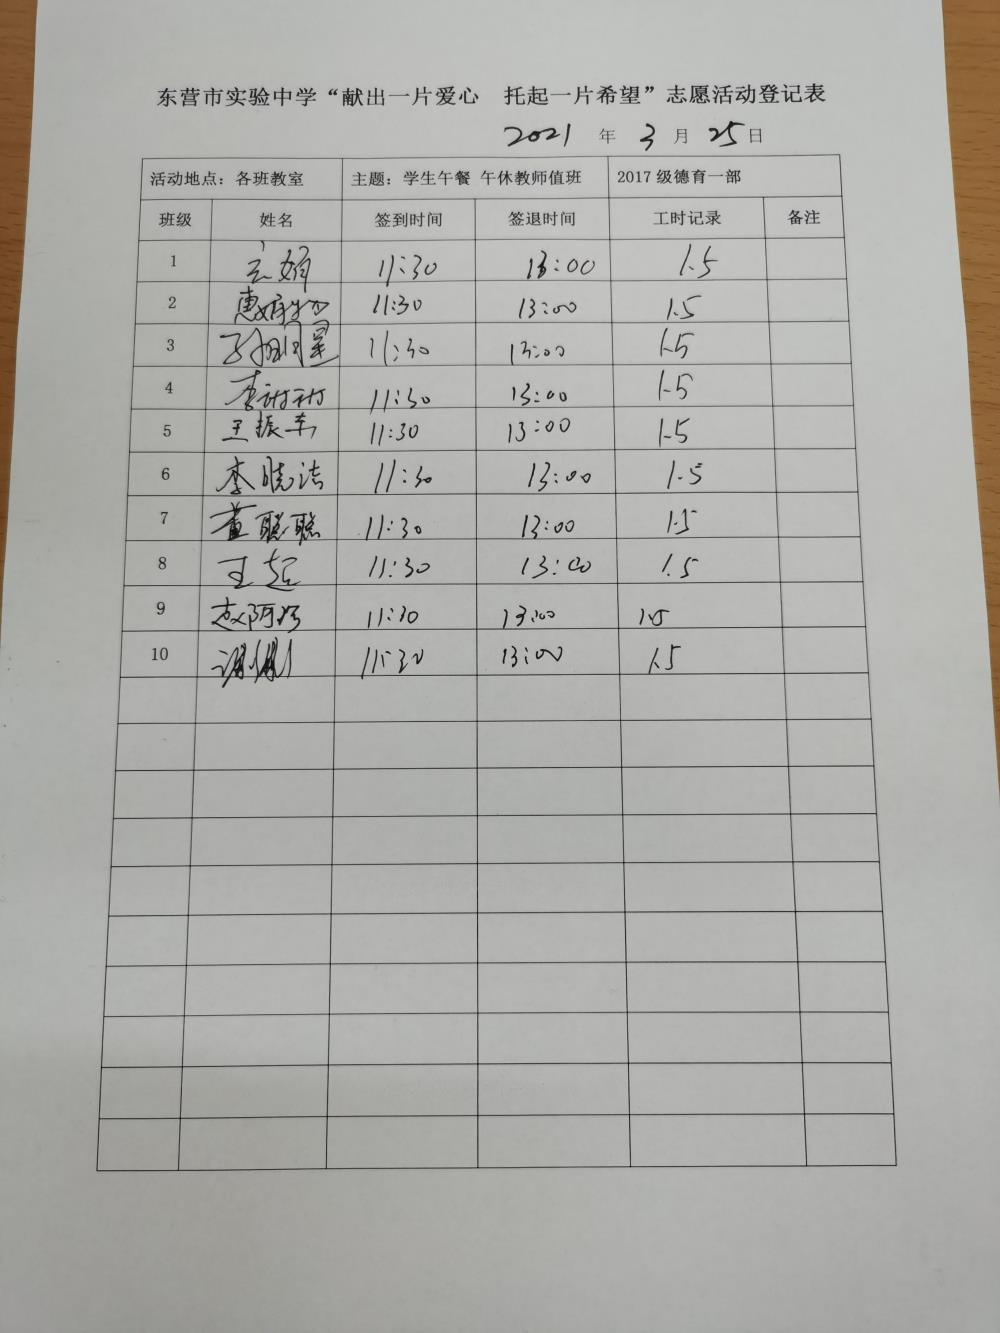 东营市实验中学“献出一片爱心 托起一片希望”志愿活动登记表
2021 年 3 月 25 日
活动地点：各班教室 主题：学生午餐 午休教师值班 2017 级德育一部
班级 姓名 签到时间 签退时间 工时记录 备注
1 11:30 13:00 1.5
2 11:30 13:00 1.5
3 11:30 13:00 1.5
4 李甜甜 11:30 13:00 1.5
5 王振东 11:30 13:00 1.5
6 李晓洁 11:30 13:00 1.5
7 董聪聪 11:30 13:00 1.5
8 王超 11:30 13:00 1.5
9 11:30 13:00 1.5
10 11:30 13:00 1.5